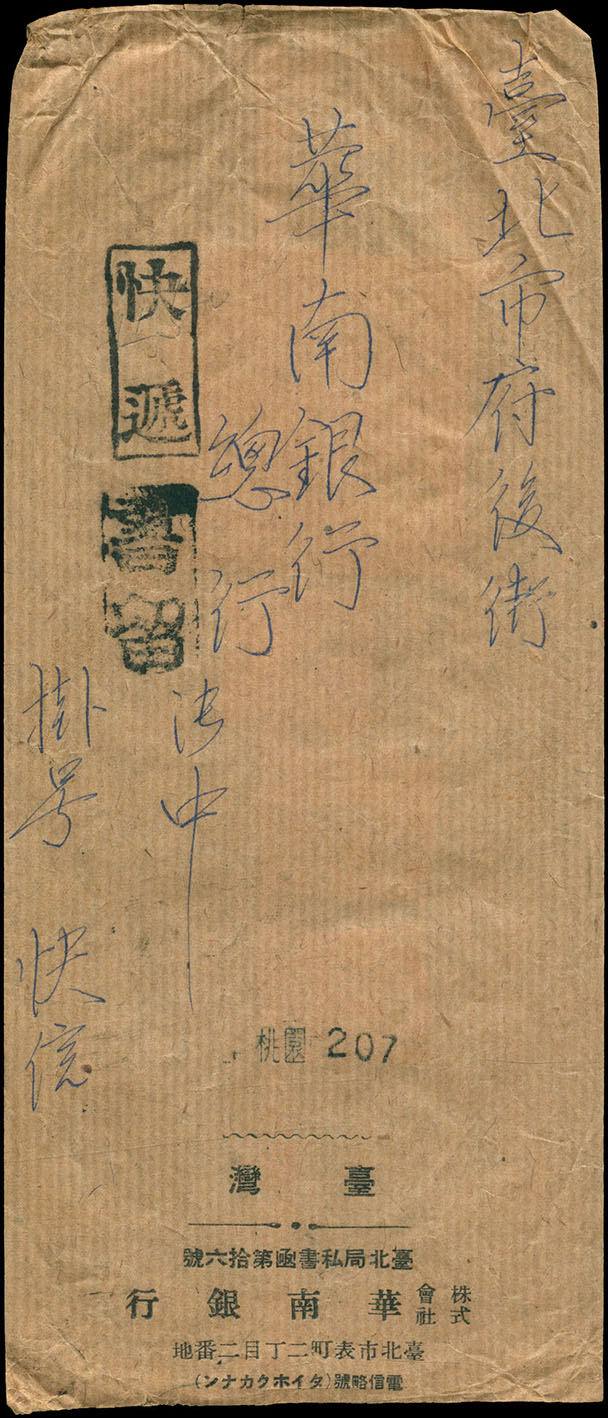 臺北市府後街
華南銀行
總行
快遞
書留
掛号 快信
桃園 207
臺灣
臺北局私書凾第拾六號
株式會社 華南銀行
臺北市表町二丁目二番地
電信略號(タイホクカナン)